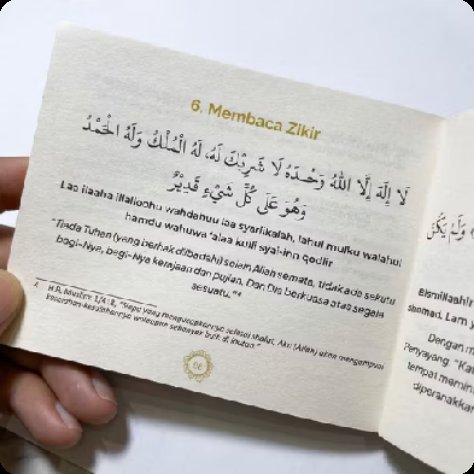 6. Membaca Zikir
لَا إِلَهَ إِلَّا اللَّهُ وَحْدَهُ لَا شَرِيْكَ لَهُ، لَهُ الْمُلْكُ وَلَهُ الْحَمْدُ
وَهُوَ عَلَى كُلِّ شَيْءٍ قَدِيْرٌ
Laa ilaaha illalloohu wahdahuu laa syariikalah, lahul mulku walahul
hamdu wahuwa 'alaa kulli syai-inn qodiir
"Tiada Tuhan (yang berhak diibadahi) selain Allah semata, tidak ada sekutu
bagi-Nya, bagi-Nya kerajaan dan pujian. Dan Dia berkuasa atas segala
sesuatu."4
4 H.R. Muslim: 1/418, "Siapa yang mengucapkannya selesai shalat, Aku (Allah) akan mengampuni
kesalahan-kesalahannya walaupun sebanyak buih di lautan."
وَلَمْ يَكُنْ
Bismillaahi
shomad. Lam y
Dengan m
Penyayang. "Kat
tempat memin
diperanakkan